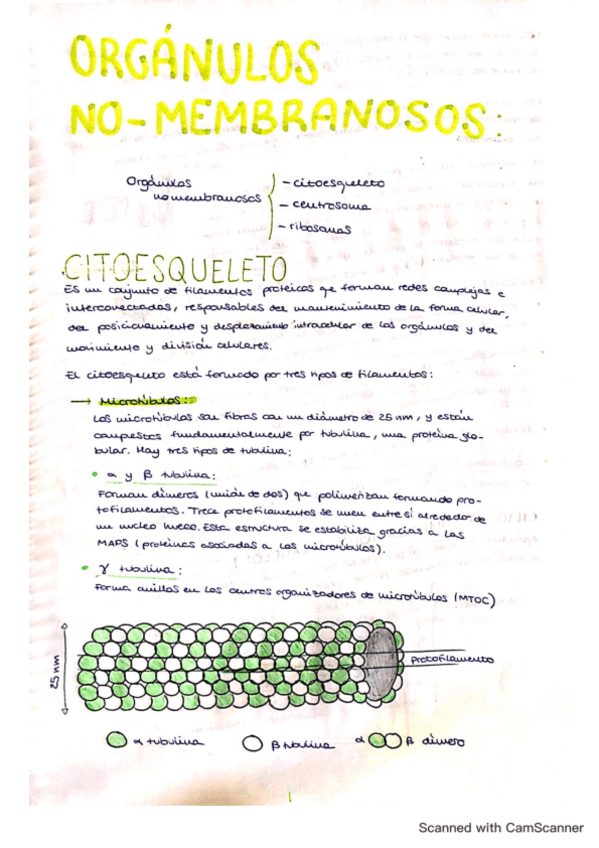 ORGÁNULOS
NO-MEMBRANOSOS:
Orgánulos
no membranosos
- citoesqueleto
- centrosoma
- ribosomas
CITOESQUELETO
Es un conjunto de filamentos proteicos que forman redes complejas e
interconectadas, responsables del mantenimiento de la forma celular,
del posicionamiento y desplazamiento intracelular de los orgánulos y del
movimiento y división celulares.
El citoesqueleto está formado por tres tipos de filamentos:
→ Microtúbulos:
Los microtúbulos son fibras con un diámetro de 25 nm, y están
compuestos fundamentalmente por tubulina, una proteína glo-
bular. Hay tres tipos de tubulina:
• α y β tubulina:
Forman dímeros (unión de dos) que polimerizan formando pro-
tofilamentos. Trece protofilamentos se unen entre sí alrededor de
un núcleo hueco. Esta estructura se estabiliza gracias a las
MAPS (proteínas asociadas a los microtúbulos).
• γ tubulina:
Forma anillos en los centros organizadores de microtúbulos (MTOC)
25 nm
Protofilamento
α tubulina
β tubulina
α β dímero
1
Scanned with CamScanner